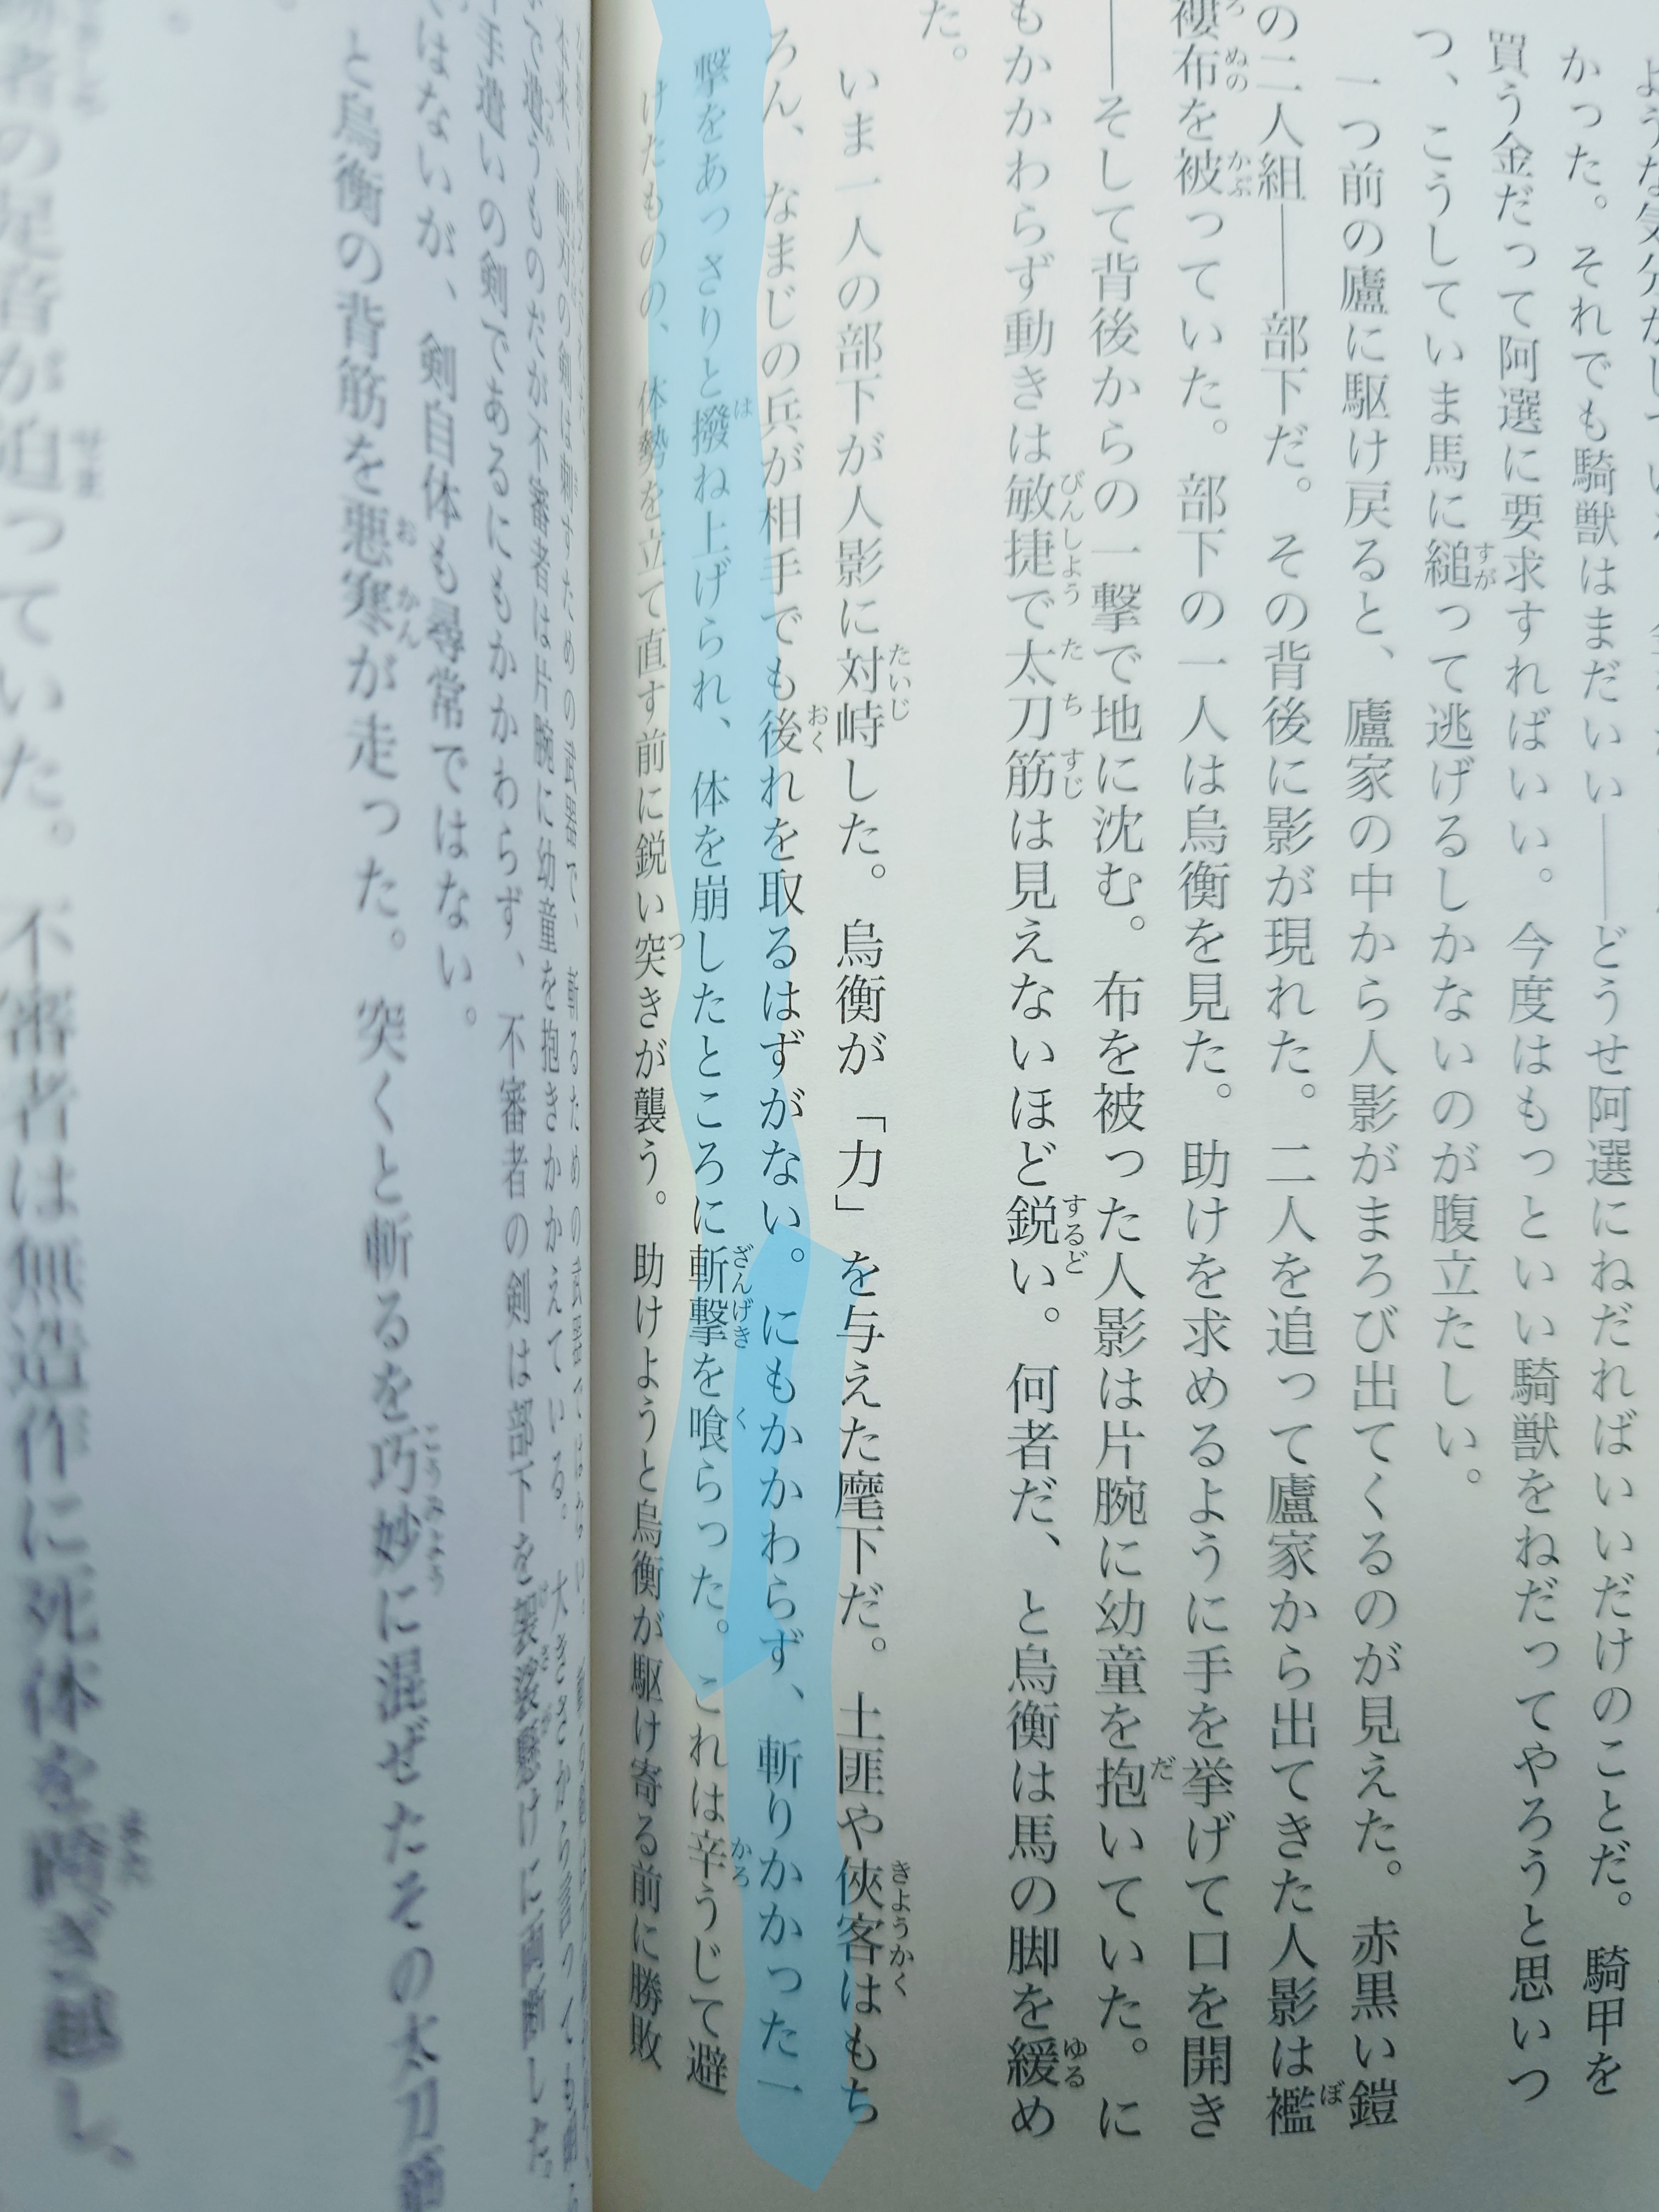 かった。それでも騎獣はまだいい――どうせ阿選にねだればいいだけのことだ。騎甲を
買う金だって阿選に要求すればいい。今度はもっといい騎獣をねだってやろうと思いつ
つ、こうしていま馬に縋って逃げるしかないのが腹立たしい。
一つ前の廬に駆け戻ると、廬家の中から人影がまろび出てくるのが見えた。赤黒い鎧
の二人組――部下だ。その背後に影が現れた。二人を追って廬家から出てきた人影は襤
褸布を被っていた。部下の一人は烏衡を見た。助けを求めるように手を挙げて口を開き
――そして背後からの一撃で地に沈む。布を被った人影は片腕に幼童を抱いていた。に
もかかわらず動きは敏捷で太刀筋は見えないほど鋭い。何者だ、と烏衡は馬の脚を緩め
た。
いま一人の部下が人影に対峙した。烏衡が「力」を与えた麾下だ。土匪や俠客はもち
ろん、なまじの兵が相手でも後れを取るはずがない。にもかかわらず、斬りかかった一
撃をあっさりと撥ね上げられ、体を崩したところに斬撃を喰らった。これは辛うじて避
けたものの、体勢を立て直す前に鋭い突きが襲う。助けようと烏衡が駆け寄る前に勝敗
で遣うものだが不審者は片腕に幼童を抱きかかえている。大きさから言っても
手遣いの剣であるにもかかわらず、不審者の剣は部下を袈裟懸けに両断した。
ではないが、剣自体も尋常ではない。
と烏衡の背筋を悪寒が走った。突くと斬るを巧妙に混ぜたその太刀筋
者の足音が迫っていた。不審者は無造作に死体を跨ぎ越し、